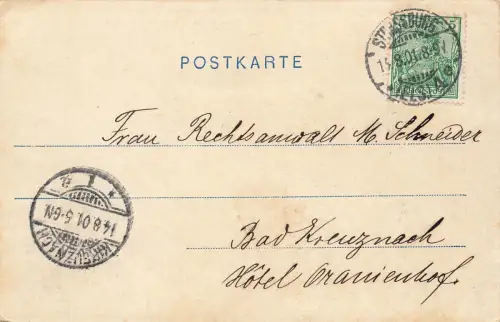 POSTKARTE
STRASSBURG
14.8.01.8-9V
Frau Rechtsanwalt M Schneider
KREUZNACH
14.8.01.5-6N
Bad Kreuznach
Hôtel Oranienhof.